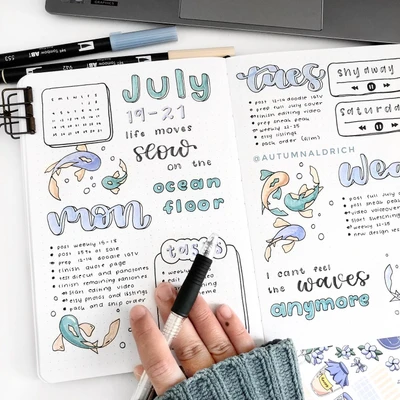 July
19-21
life moves
slow
on the
ocean
floor
mon
post weekly 15-18
prep 12-14 doodle IGTV
finish quote page
finish remaining pansiones
start editing video
etsy photos and listings
pack and ship order
tasks
weekly
edit
tues
post 12-14 doodle IGTV
prep full July cover
finish editing video
prep sneak peak
weekly 22-25
etsy listings
pack order
shy away
saturda
@AUTUMNALDRICH
wed
post full July
post sneak peak
video voiceover
start sketching
weekly
new design
I can't feel
the waves
anymore
ABT
942
ABT
553